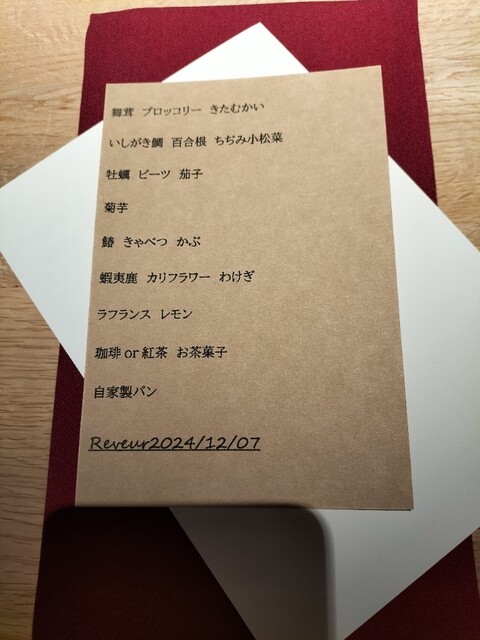 舞茸 ブロッコリー きたむかい
いしがき鯛 百合根 ちぢみ小松菜
牡蠣 ビーツ 茄子
菊芋
鰆 きゃべつ かぶ
蝦夷鹿 カリフラワー わけぎ
ラフランス レモン
珈琲 or 紅茶 お茶菓子
自家製パン
Reveur2024/12/07